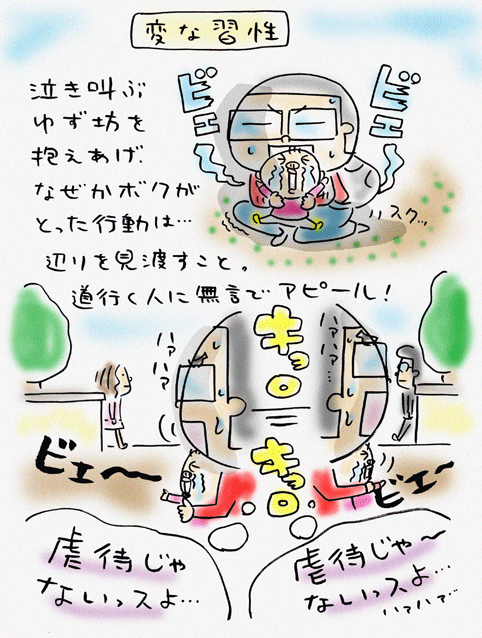 変な習性
泣き叫ぶ
ゆず坊を
抱えあげ、
なぜかボクが
とった行動は…
辺りを見渡すこと。
道行く人に無言でアピール!
ビエー
ビエー
スクッ
ハァハァ
キョロ
ハァハァ…
キョロ
ビエ〜
ビエ〜
虐待じゃ
ないっスよ…
虐待じゃ〜
ないっスよ…
ハァハァ